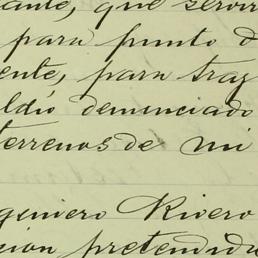 ante, que servir
para punto d
ente, para traz
aldío denunciado
terrenos de mi
geniero Rivero
cion pretendida